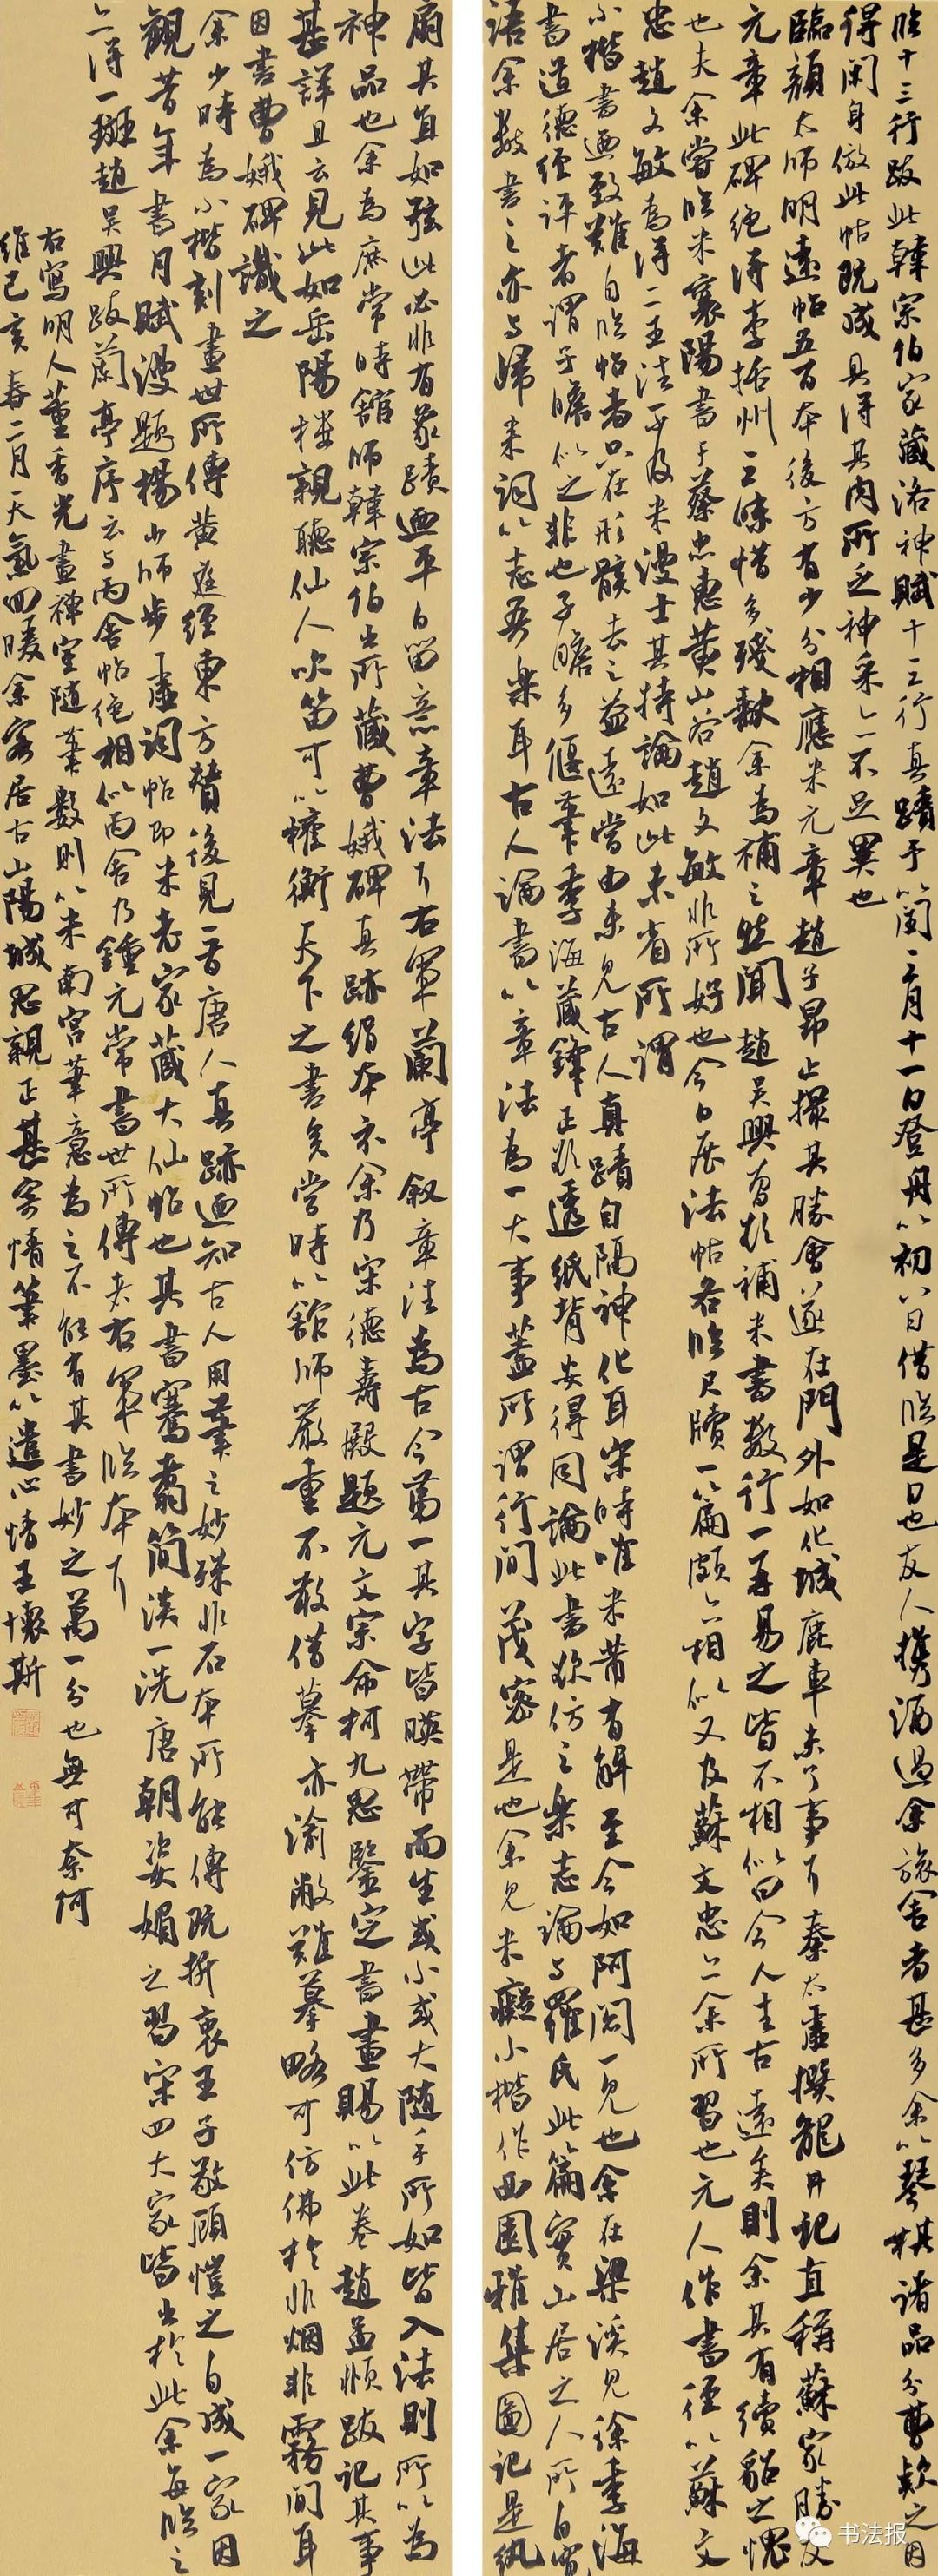 临十三行跋此韓宗伯家藏洛神賦十三行真蹟予以閏三月十一日登舟以初八日借临是日也友人携酒過余旅舍者甚多余以琴棋諸品分曹款之因
得闲身仿此帖既成具得其肉所乏神采亦不足異也
臨顏太師明遠帖五百本後方有少分相應米元章趙子昂止撮其勝會遂在門外如化城鹿車未了事耳秦太虛撰龍井記直稱蘇家勝友
元章此碑绝得李括州三昧惜多殘缺余為補之然聞趙吳興曾欲補米書數行一再易之皆不相似曰今人去古遠矣則余其有續貂之愧
也夫余嘗临米襄陽書于蔡忠惠黄山谷趙文敏非所好也今日展法帖各临尺牘一篇頗亦相似又及蘇文忠亦余所習也元人作書徑以蘇文
忠趙文敏為得二王法不及米漫士其持論如此未省所謂
小楷書迺致難自临帖者只在形骸去之益遠當由未見古人真蹟自隔神化耳宋時唯米芾有解至今如阿閦一見也余在梁溪見徐季海
書道德經評者謂子瞻似之非也子瞻多偃筆季海藏鋒正欲透紙背安得同論此書欲仿之樂志論与羅氏此篇實山居之人所自寬
语余數書之亦与歸来詞以志吾樂耳古人論書以章法為一大事蓋所謂行間茂密是也余見米癡小楷作西園雅集圖記是紈
扇其直如弦此必非有蒙蹟迺平日留意章法耳右軍蘭亭叙章法為古今第一其字皆暎帶而生或小或大随手所如皆入法則所以為
神品也余為庶常時館師韓宗伯出所藏曹娥碑真跡绢本示余乃宋德壽殿題元文宗命柯九思鑒定書畫賜以此卷趙孟頫跋記其事
甚詳且云見此如岳陽楼親聽仙人吹笛可以權衡天下之書矣當時以館師嚴重不敢借摹亦渝敝難摹略可仿佛於非烟非霧間耳
因書曹娥碑識之
余少時為小楷刻畫世所傳黄庭經東方贊後見晋唐人真跡迺知古人用筆之妙殊非石本所能傳既折衷王子敬顧愷之自成一家因
觀昔年書月賦漫題楊少師步虛詞帖即米老家藏大仙帖也其書騫翥简淡一洗唐朝姿媚之習宋四大家皆出於此余每临之
亦得一斑趙吳興跋蘭亭序云与丙舍帖绝相似丙舍乃鍾元常書世所傳者右軍临本耳
右寫明人董香光畫禅室随筆數則以米南宮筆意為之不能有其書妙之萬一分也無可奈何
維己亥春二月天氣回暖余客居古山陽城思親正甚寄情筆墨以遣心情王懷斯
书法报